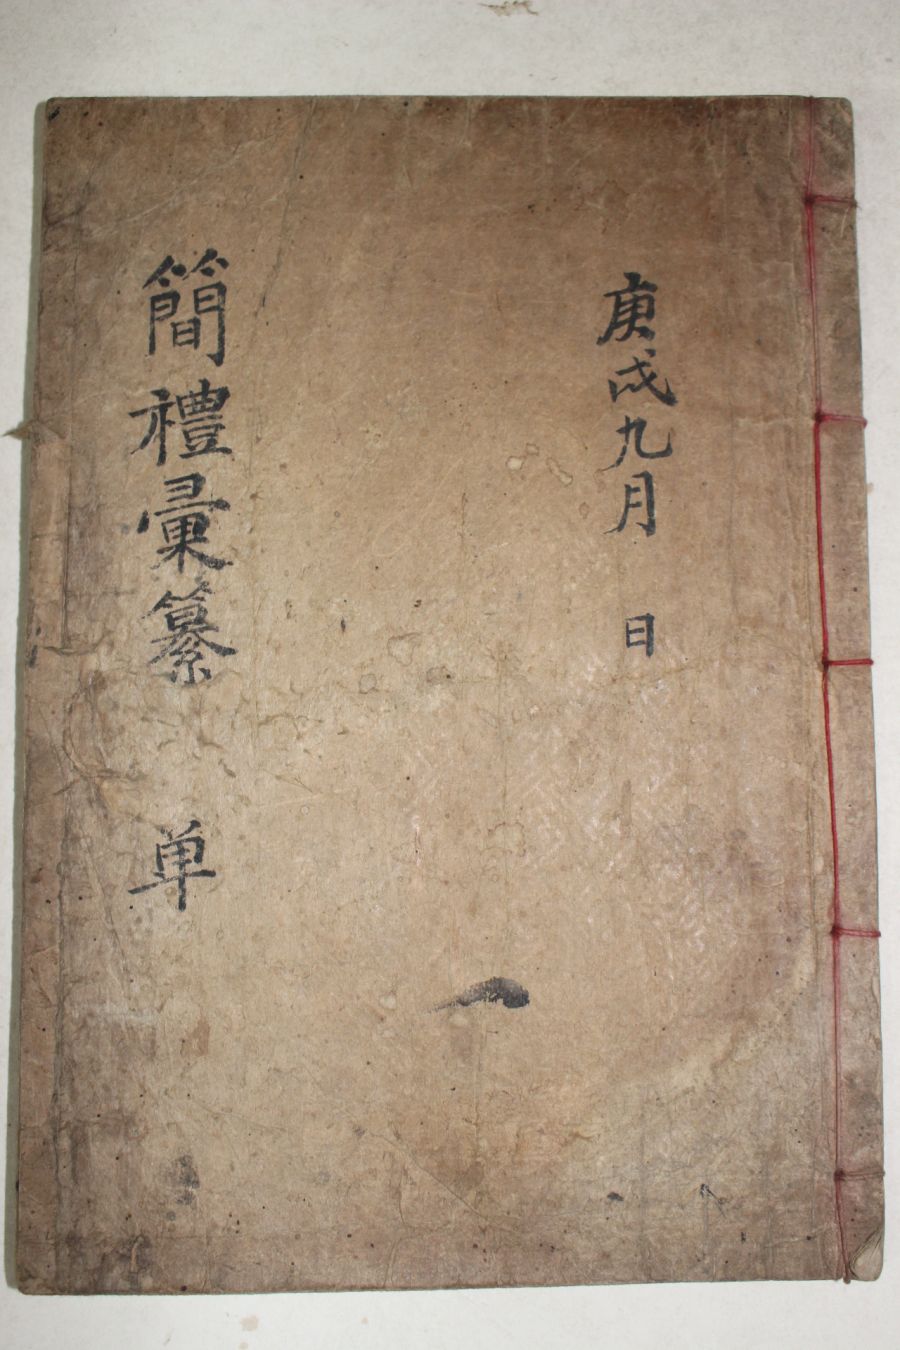 庚戌九月 日
簡禮彙纂 単